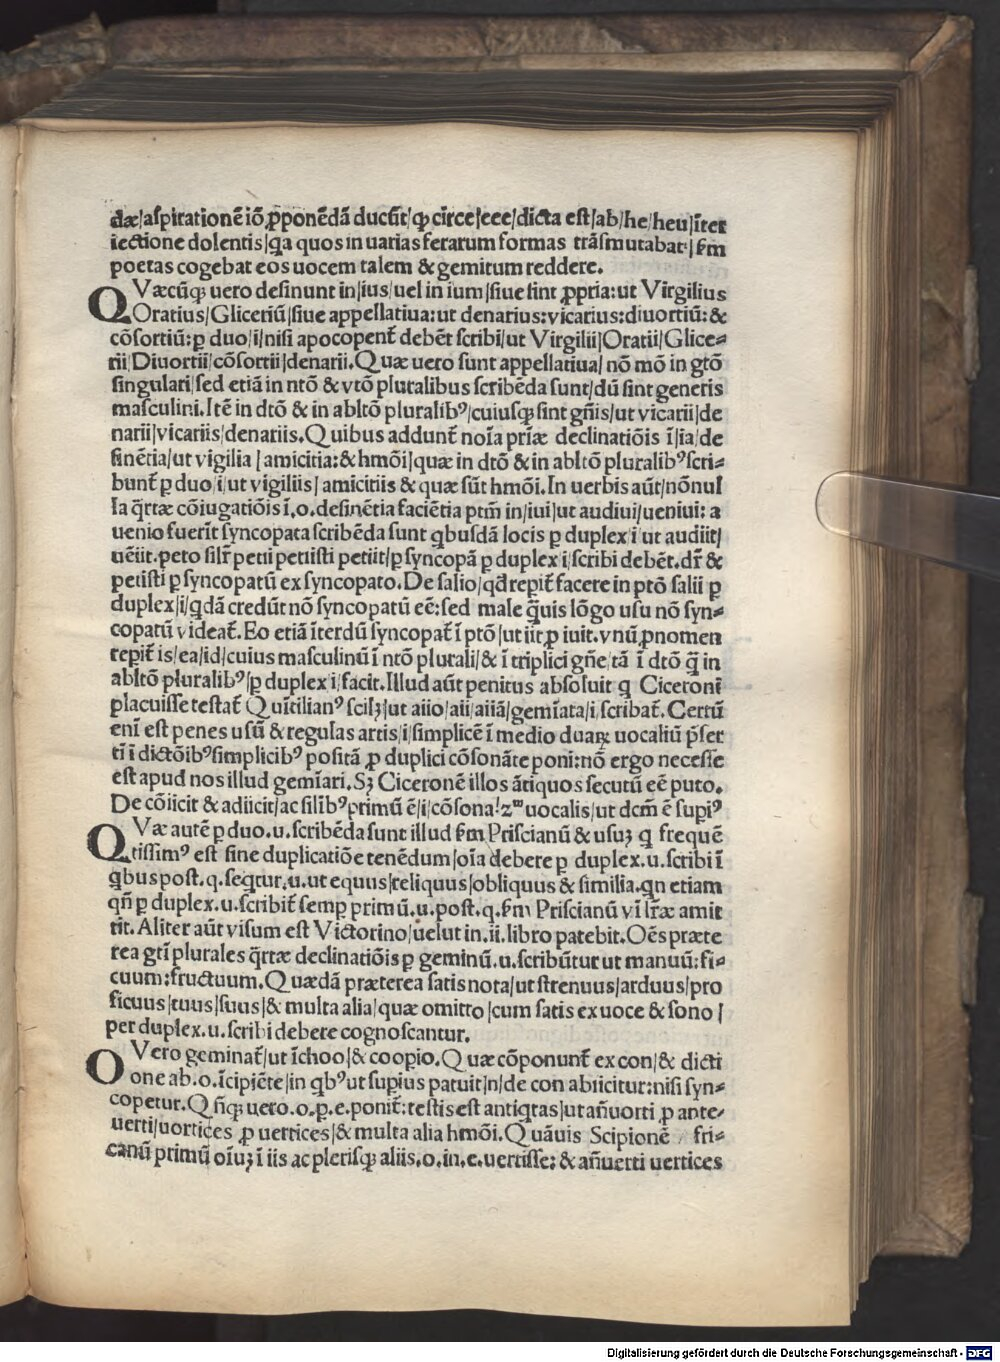 dæ/aſpirationē iō ꝓponēdā ducſit/ꝙ cīrce/eee/dicta eſt/ab/he/heu/īter
iectione dolentis/ꝗa quos in uarias ferarum formas trāſmutabat:/ẜm
poetas cogebat eos uocem talem & gemitum reddere.
QVæcūqꝫ uero deſinunt in/ius/uel in ium/ſiue ſint ꝓpria:ut Virgilius
Oratius/Gliceriū/ſiue appellatiua:ut denarius:vicarius:diuortiū:&
cōſortiū:ꝑ duo/i/niſi apocopent̄ debēt ſcribi/ut Virgilii/Oratii/Glice⸗
rii/Diuortii/cōſortii/denarii.Quæ uero ſunt appellatiua/ nō mō in gtō
ſingulari/ſed etiā in ntō & vtō pluralibus ſcribēda ſunt/dū ſint generis
maſculini.Itē in dtō & in abltō pluralibꝰ/cuiuſqꝫ ſint gn̄is/ut vicarii/de
narii/vicariis/denariis.Quibus addunt̄ noīa prīæ declinatiōis ī/ia/de
ſinētia/ut vigilia/amicitia:& hmōi/quæ in dtō & in abltō pluralibꝰ ſcri⸗
bunt̄ ꝑ duo/i/ut vigiliis/amicitiis & quæ ſūt hmōi.In uerbis aūt/nōnul
la q̄rtæ cōiugatiōis ī.o.deſinētia faciētia ptm̄ in/iui/ut audiui/ueniui: a
uenio fuerīt ſyncopata ſcribēda ſunt ꝗbuſdā locis ꝑ duplex/i ut audiit/
uēiit.peto ſilr̄ petii petiiſti petiit/ꝑ ſyncopā ꝑ duplex i/ſcribi debēt.dr̄ &
petiſti ꝑ ſyncopatū ex ſyncopato.De ſalio/qd̄ reperit̄ facere in ptō ſalii ꝑ
duplex/i/ꝗdā credūt nō ſyncopatū eē:ſed male q̄uis lōgo uſu nō ſyn⸗
copatū videat̄.Eo etiā īterdū ſyncopat̄ ī ptō/ut iit ꝓ iuit.vnū ꝓnomen
reperit̄ is/ea/id/cuius maſculinū ī ntō plurali/& ī triplici gn̄e/tā ī dtō q̄ in
abltō pluralibꝰ/ꝑ duplex i/facit.Illud aūt penitus abſoluit ꝙ Ciceroni
placuiſſe teſtat̄ Quītilianꝰ ſcilꝫ/ut aiio/aii/aiiā/gemīata/i/ſcribat̄.Certū
enī eſt penes uſū & regulas artis/i/ſimplicē ī medio duaꝝ uocaliū p̄ſer
tī ī dictōibꝰ ſimplicibꝰ poſitā ꝓ duplici cōſonāte poni:nō ergo neceſſe
eſt apud nos illud gemīari.Sꝫ Ciceronē illos ātiquos ſecutū eē puto.
De cōiicit & adiicit/ac ſilībꝰ primū ē/i/cōſona/2m uocalis/ut dcm̄ ē ſupiꝰ
QVæ autē ꝑ duo.u.ſcribēda ſunt illud ẜm Priſcianū & uſuꝫ ꝙ frequē
tiſſimꝰ eſt ſine duplicatiōe tenēdum/oīa debere ꝑ duplex.u.ſcribi ī
ꝗbus poſt.q.ſeqt̄ur.u.ut equus/reliquus/obliquus & ſimilia.qn etiam
qn̄ ꝑ duplex.u.ſcribit̄ ſemꝑ primū.u.poſt.q.ẜm Priſcianū vī lr̄æ amit
tit.Aliter aūt viſum eſt Victorino/uelut in.ii.libro patebit.Oēs præte
rea gtī plurales q̄rtæ declinatiōis ꝑ geminū.u.ſcribūtur ut manuū:fi⸗
cuum:fructuum.Quædā præterea ſatis nota/ut ſtrenuus/arduus/pro
ficuus/tuus/ſuus/& multa alia/quæ omitto/cum ſatis ex uoce & ſono/
per duplex.u.ſcribi debere cognoſcantur.
OVero geminat̄/ut īchoo/& coopio.Quæ cōponunt̄ ex con/& dicti
one ab.o.īcipiēte/in ꝗbꝰ ut ſuperius patuit/n/de con abiicitur:niſi ſyn⸗
copetur.Qn̄qꝫ uero.o.ꝑ.e.ponit̄:teſtis eſt antiqtas/ut añuorti ꝓ ante⸗
uerti/uortices ꝓ uertices/& multa alia hmōi.Quāuis Scipionē fri⸗
canū primū oīuꝫ ī iis ac pleriſqꝫ aliis.o.in.e.uertiſſe: & añuerti uertices
Digitalisierung gefördert durch die Deutsche Forschungsgemeinschaft - DFG